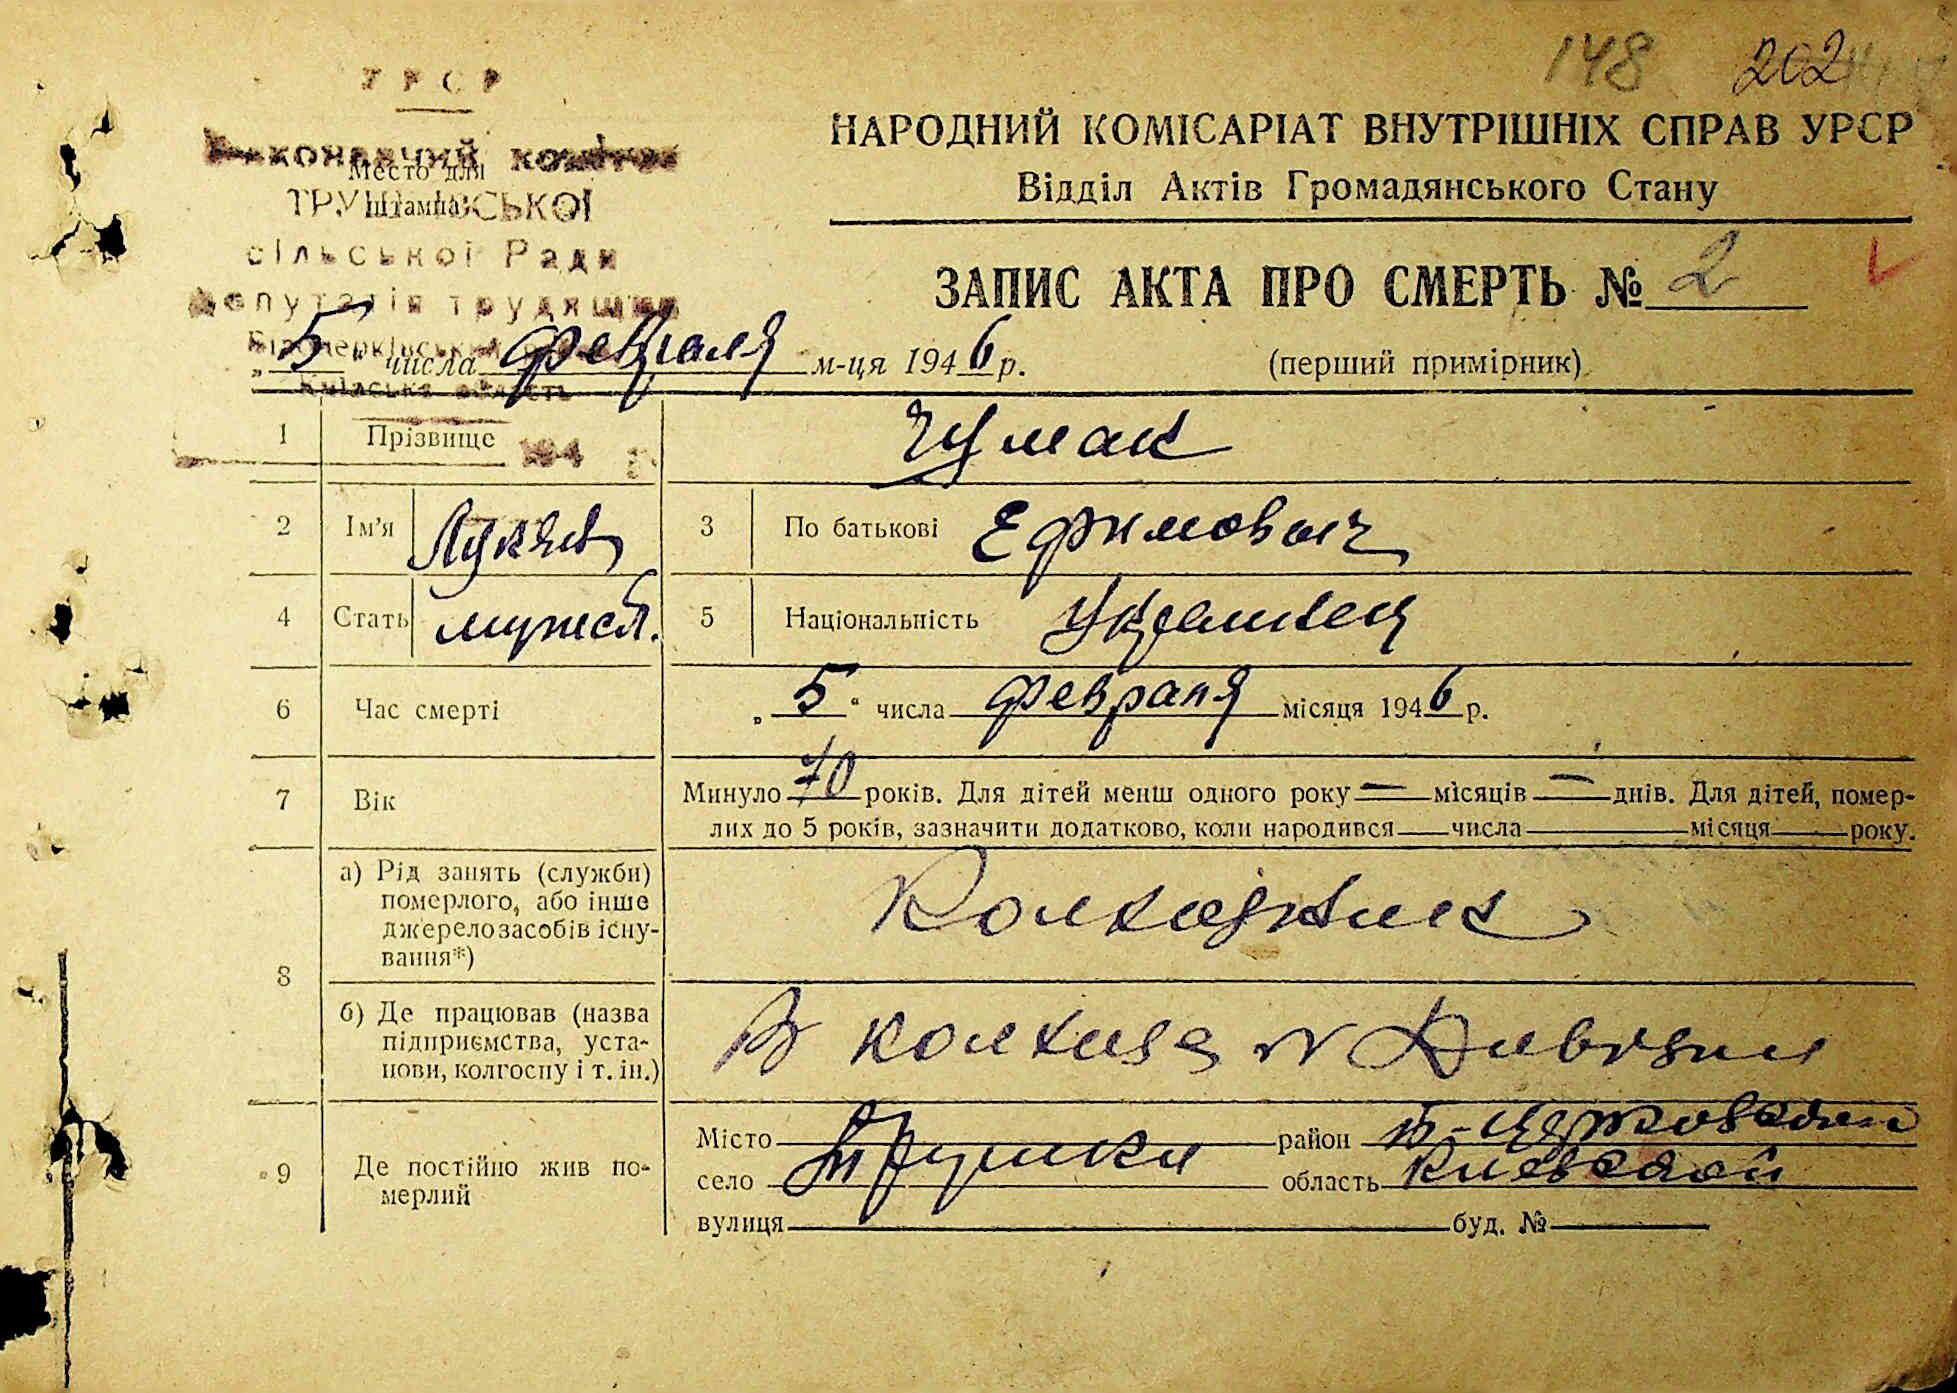 148 202
УРСР
Виконавчий комітет
Место для
штампа
ТРУШКІВСЬКОЇ
сільської Ради
депутатів трудящих
Білоцерківський
Київська область
194 р.
НАРОДНИЙ КОМІСАРІАТ ВНУТРІШНІХ СПРАВ УРСР
Відділ Актів Громадянського Стану
ЗАПИС АКТА ПРО СМЕРТЬ № 2
„5“ числа февраля м-ця 1946 р.
(перший примірник)
1 Прізвище Чумак
2 Ім'я Лукян 3 По батькові Ефимович
4 Стать мужск. 5 Національність Украинец
6 Час смерті „5“ числа февраля місяця 1946 р.
7 Вік Минуло 70 років. Для дітей менш одного року — місяців — днів. Для дітей, помер-
лих до 5 років, зазначити додатково, коли народився числа місяця року.
8 а) Рід занять (служби)
померлого, або інше
джерело засобів існу-
вання*)
Колхозник
б) Де працював (назва
підприємства, уста-
нови, колгоспу і т. ін.)
В колхозе
9 Де постійно жив по-
мерлий
Місто
село Трушки
район Б-Церковский
область Киевской
вулиця буд. №